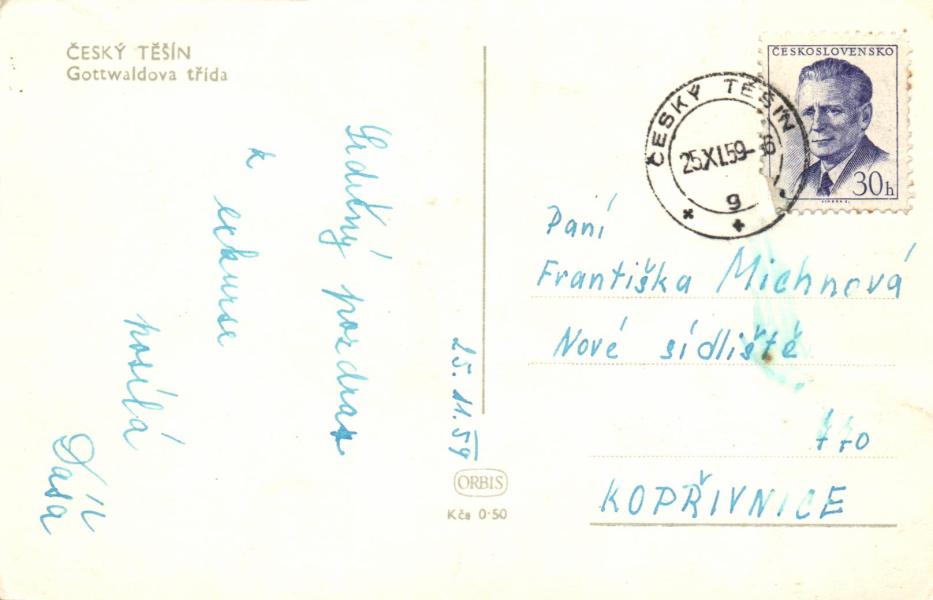 ČESKÝ TĚŠÍN
Gottwaldova třída
Srdečný pozdrav
z exkurse
posílá
Dáša
25.11.59
ORBIS
Kčs 0·50
ČESKOSLOVENSKO
30h
ČESKÝ TĚŠÍN
25.XI.59-
9
Paní
Františka Michnová
Nové sídliště
770
KOPŘIVNICE